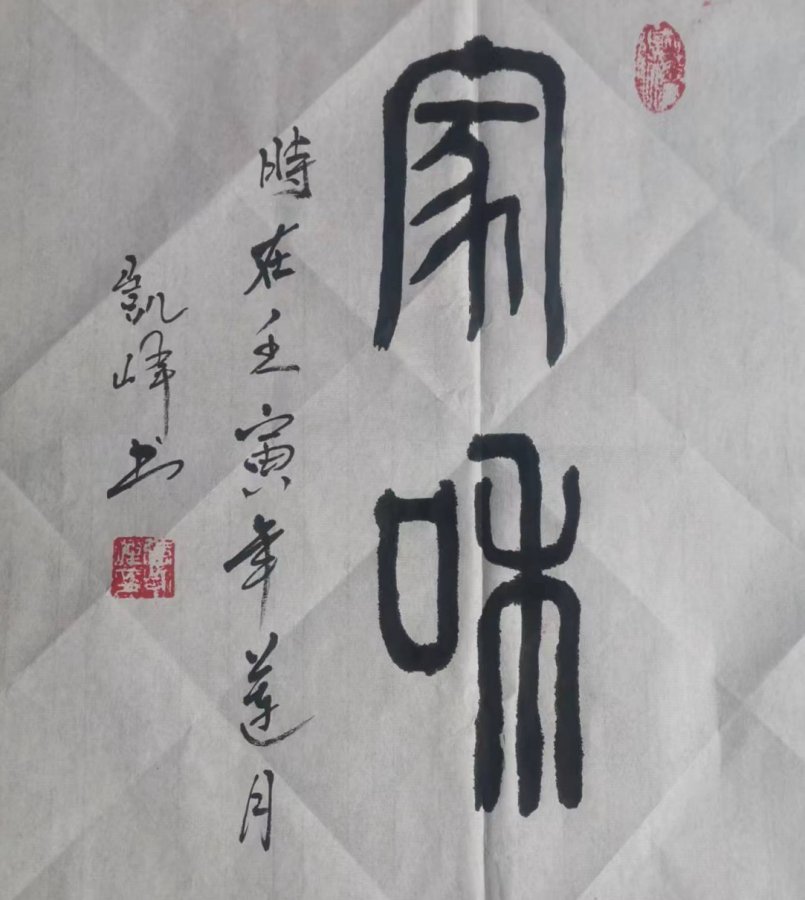 家和
時在壬寅年蓮月
凱峰书